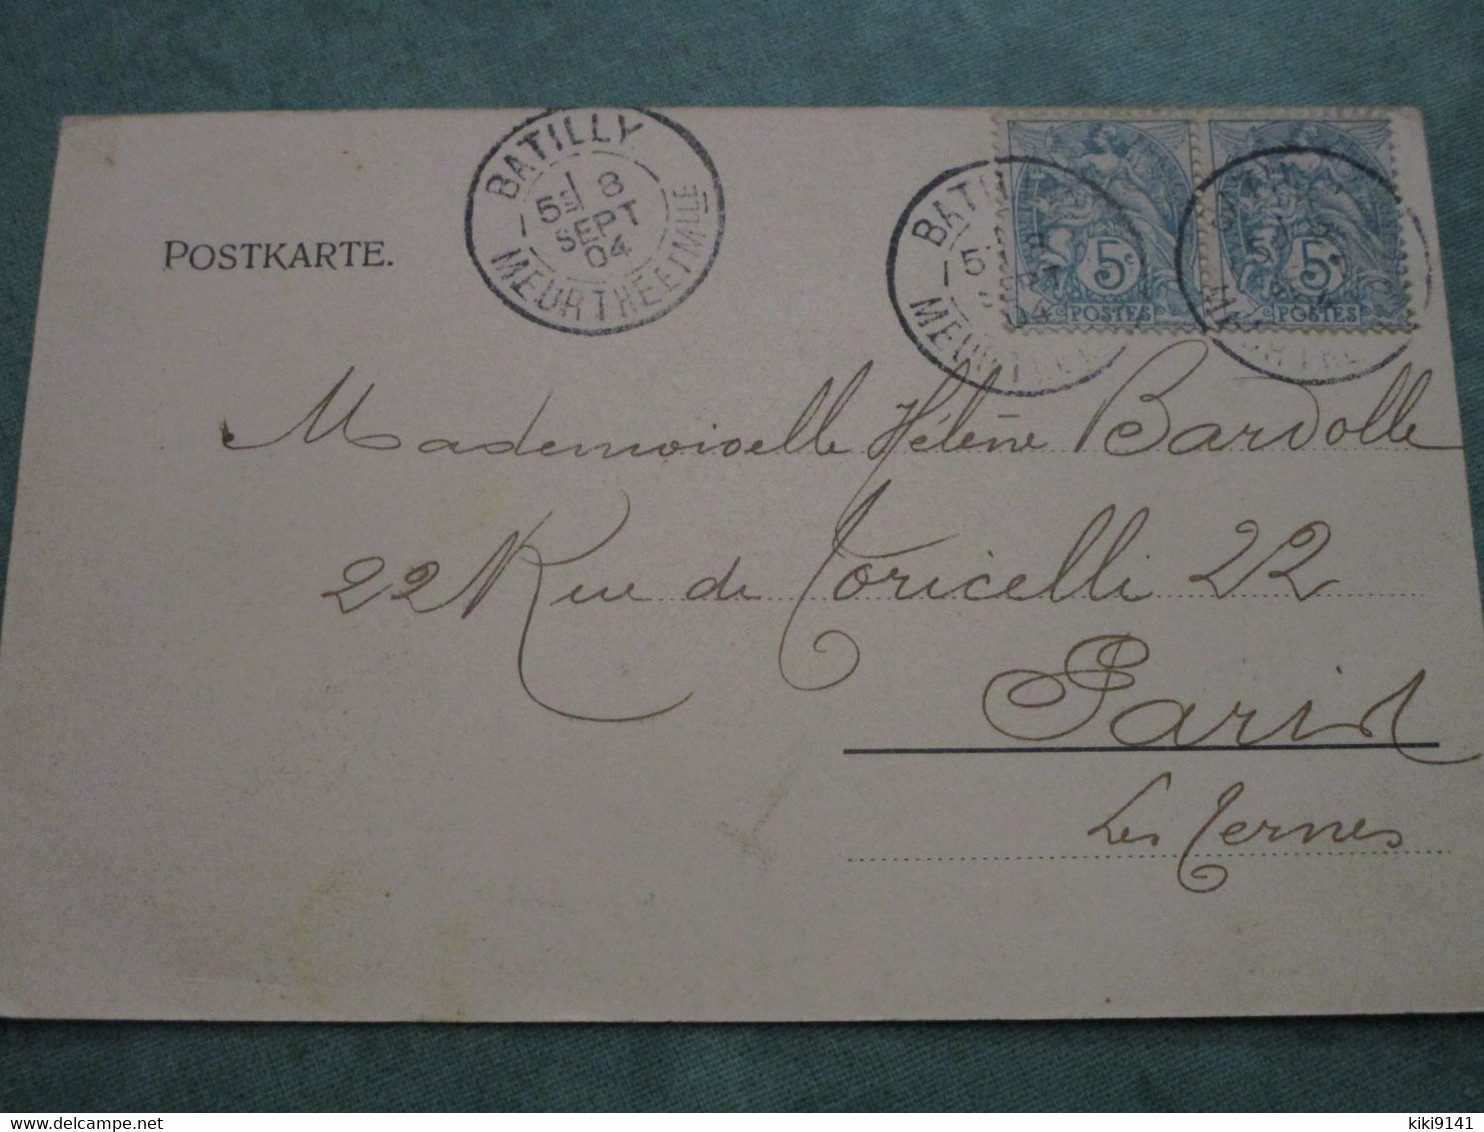 POSTKARTE.
BATILLY
18
5E
SEPT
04
MEURTHE ET MLLE
BATILLY
5
04
MEURTHE
5c
POSTES
5c
POSTES
Mademoiselle Hélène Bardolle
22 Rue de Toricelli 22
Paris
Les Ternes
www.delcampe.net
kiki9141